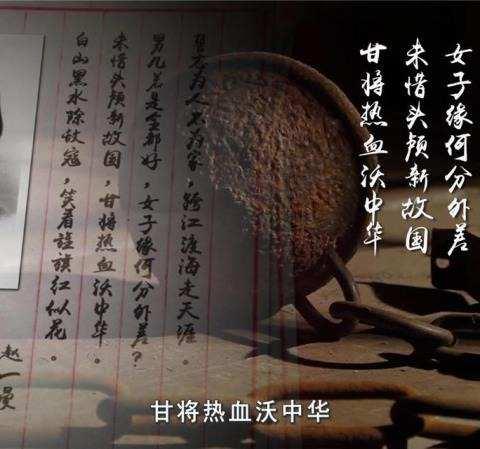 女子缘何分外差
未惜头颅新故国
甘将热血沃中华
誓志为人不为家，跨江渡海走天涯。
男儿若是全都好，女子缘何分外差？
未惜头颅新故国，甘将热血沃中华。
白山黑水除敌寇，笑看旌旗红似花。
赵一曼
甘将热血沃中华